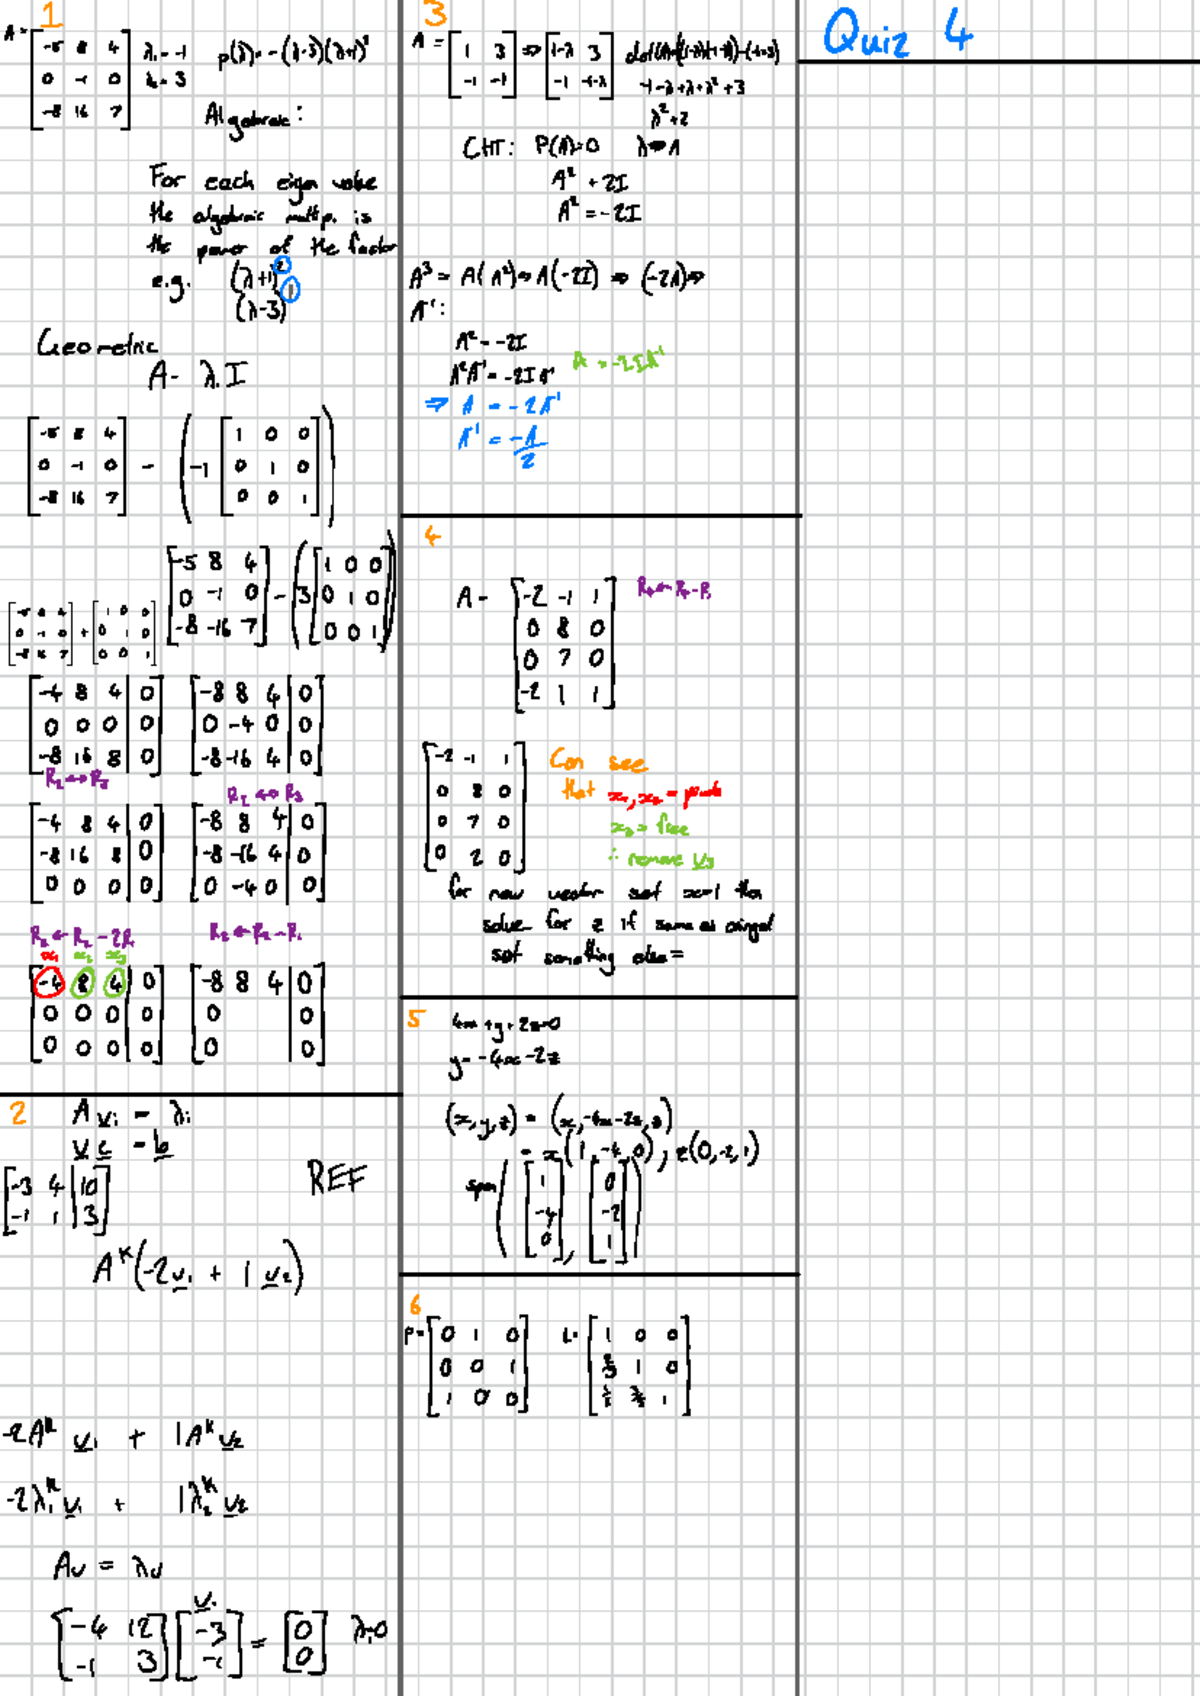 Quiz 4
1
A= [-5 8 4
0 -1 0
-8 16 7]
λ₁=-1
λ₂=3
p(λ)=-(λ-3)(λ+1)²
Algebraic:
For each eigen value
the algebraic multp. is
the power of the factor
e.g. (λ+1)²
(λ-3)¹
Geometric
A- λ.I
[-5 8 4
0 -1 0
-8 16 7] - (-1 [1 0 0
0 1 0
0 0 1])
[-5 8 4
0 -1 0
-8 -16 7] - (3 [1 0 0
0 1 0
0 0 1])
[-5 8 4
0 -1 0
-8 16 7] + [1 0 0
0 1 0
0 0 1]
[-4 8 4 | 0
0 0 0 | 0
-8 16 8 | 0]
[-8 8 4 | 0
0 -4 0 | 0
-8 -16 4 | 0]
R₂ ↔ R₃
R₂ ↔ R₃
[-4 8 4 | 0
-8 16 8 | 0
0 0 0 | 0]
[-8 8 4 | 0
-8 -16 4 | 0
0 -4 0 | 0]
R₂ ← R₂ - 2R₁
R₂ ← R₂ - R₁
x₁ x₂ x₃
[-4 8 4 | 0
0 0 0 | 0
0 0 0 | 0]
[-8 8 4 | 0
0 | 0
0 | 0]
2
A v₁ = λ₁
V c = b
[-3 4 | 10
-1 1 | 3]
REF
Aᵏ(-2v₁ + 1 v₂)
-2Aᵏ v₁ + 1Aᵏ v₂
-2λ₁ᵏ v₁ + 1λ₂ᵏ v₂
Av = λv
v₁
[-4 12
-1 3] [-3
-1] = [0
0] λ=0
3
A = [1 3
-1 -1] ⇒ [1-λ 3
-1 -1-λ]
-1-λ+λ+λ²+3
λ²+2
CHT: P(A)=0 λ⇒A
A² + 2I
A² = -2I
A³ = A(A²) ⇒ A(-2I) ⇒ (-2A) ⇒
A⁻¹:
A² = -2I
A²A⁻¹ = -2I A⁻¹
A = -2IA⁻¹
⇒ A = -2A⁻¹
A⁻¹ = -A/2
4
A = [-2 -1 1
0 8 0
0 7 0
-2 1 1]
R₄ ← R₄-R₁
[-2 -1 1
0 8 0
0 7 0
0 2 0]
Can see
that x₁, x₂ = pivots
x₃ = free
∴ remove v₃
for new vector set x=1 then
solve for z if same as original
set something else=
5
4x+y+2z=0
y=-4x-2z
(x,y,z) = (x,-4x-2z,z)
= x(1,-4,0), z(0,-2,1)
span([1
-4
0], [0
-2
1])
6
P= [0 1 0
0 0 1
1 0 0]
L= [1 0 0
1 0
1]